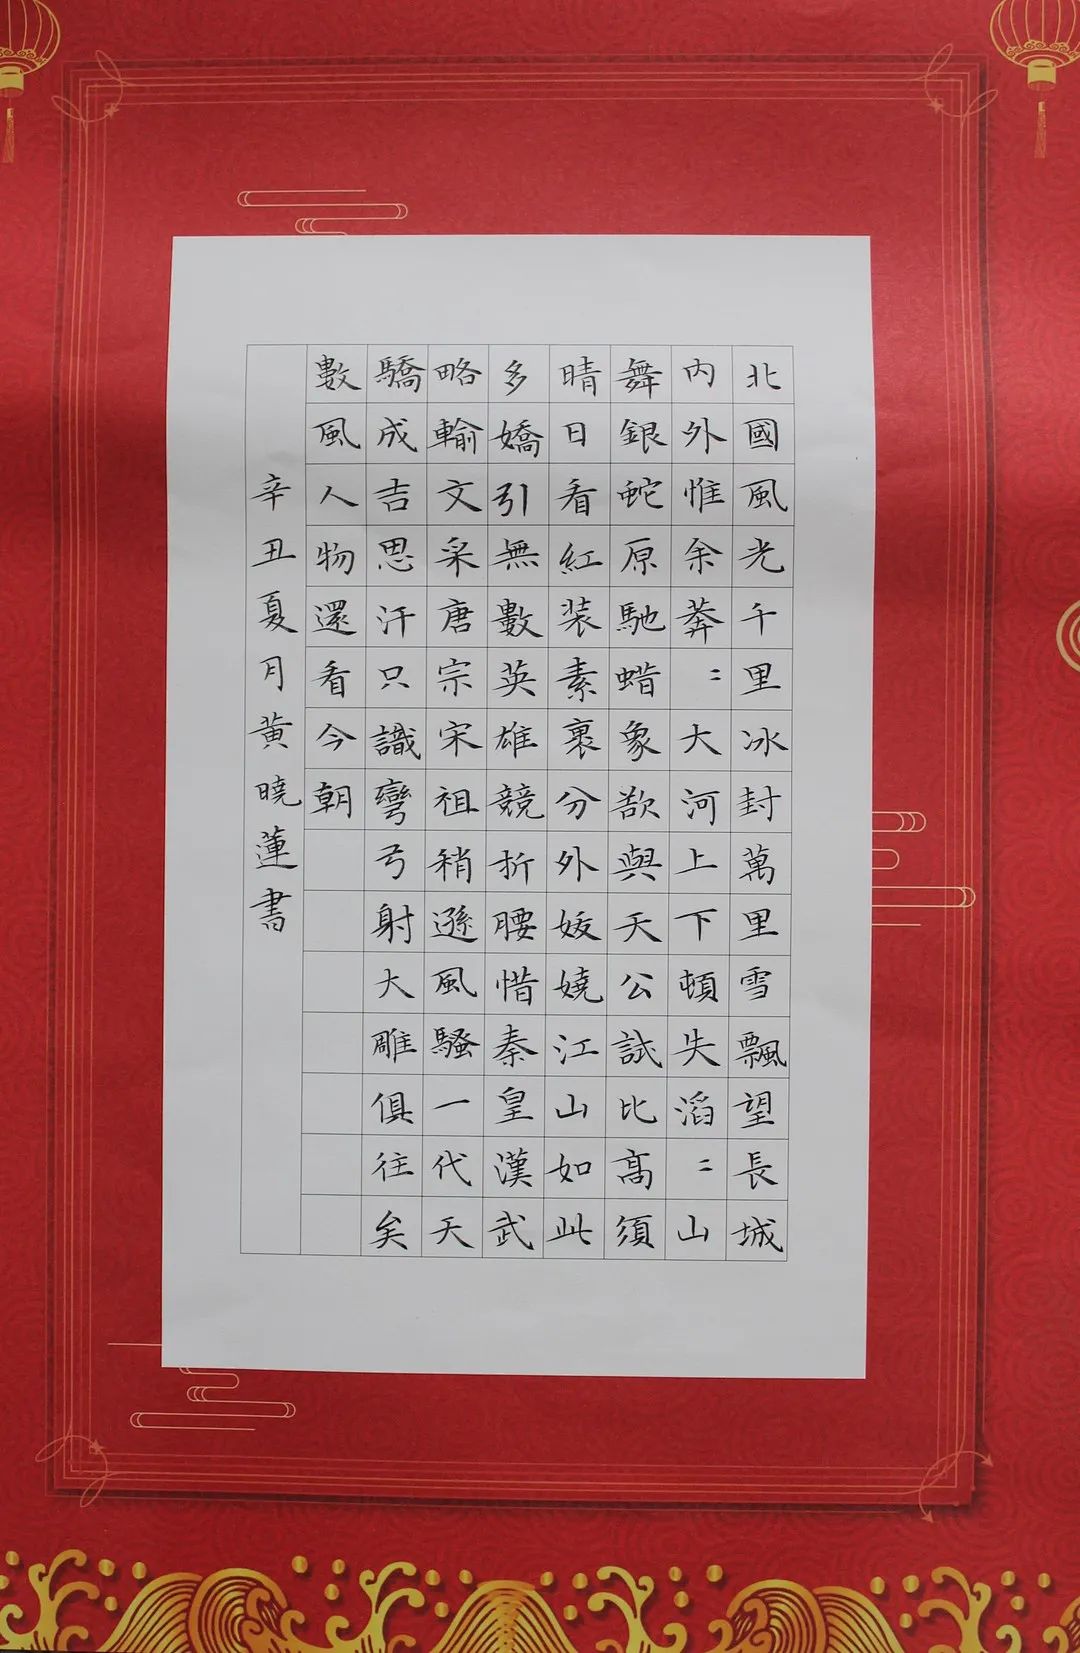 北國風光千里冰封萬里雪飄望長城
內外惟余莽〻大河上下頓失滔〻山
舞銀蛇原馳蜡象欲與天公試比高須
晴日看紅装素裹分外妖嬈江山如此
多嬌引無數英雄競折腰惜秦皇漢武
略輸文采唐宗宋祖稍遜風騷一代天
驕成吉思汗只識彎弓射大雕俱往矣
數風人物還看今朝
辛丑夏月黄曉蓮書